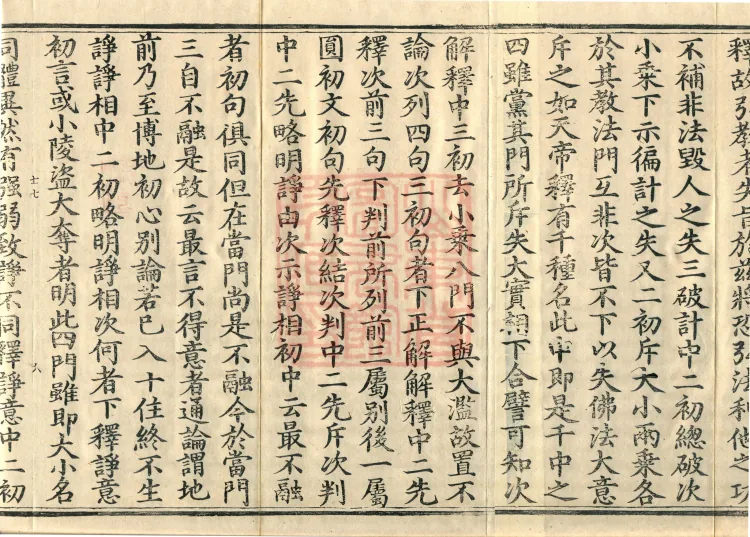 釋故引教者失旨於茲將恐弘法利他之功
不補非法毀人之失三破計中二初總破次
小乘下示徧計之失又二初斥大小兩乘各
於其教法門互非次皆不下以失佛法大意
斥之如天帝釋有千種名此中即是千中之
四雖黨其門所斥失大實相下合譬可知次
解釋中三初去小乘八門不與大濫故置不
論次列四句三初句者下正解解釋中二先
釋次前三句下判前所列前三屬別後一屬
圓初文初句先釋次結次判中二先斥次判
中二先略明諍由次示諍相初中云最不融
者初句俱同但在當門尚是不融今於當門
三自不融是故云最言不得意者通論謂地
前乃至博地初心別論若已入十住終不生
諍諍相中二初略明諍相次何者下釋諍意
初言或小陵盜大奪者明此四門雖即大小名
同體異然有強弱致諍不同釋諍意中二初
十七